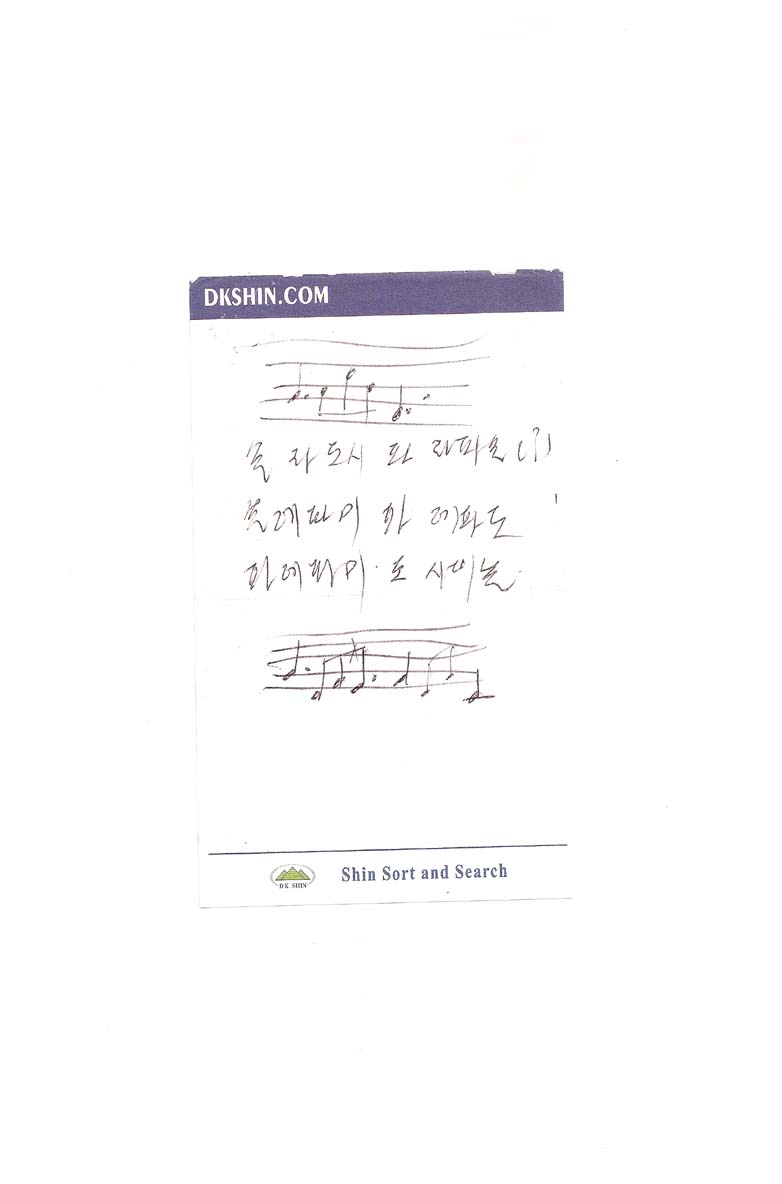 DKSHIN.COM
솔 도시 라파솔 (?)
솔레파미 레파도
파레파미. 도 시미솔
DK SHIN
Shin Sort and Search